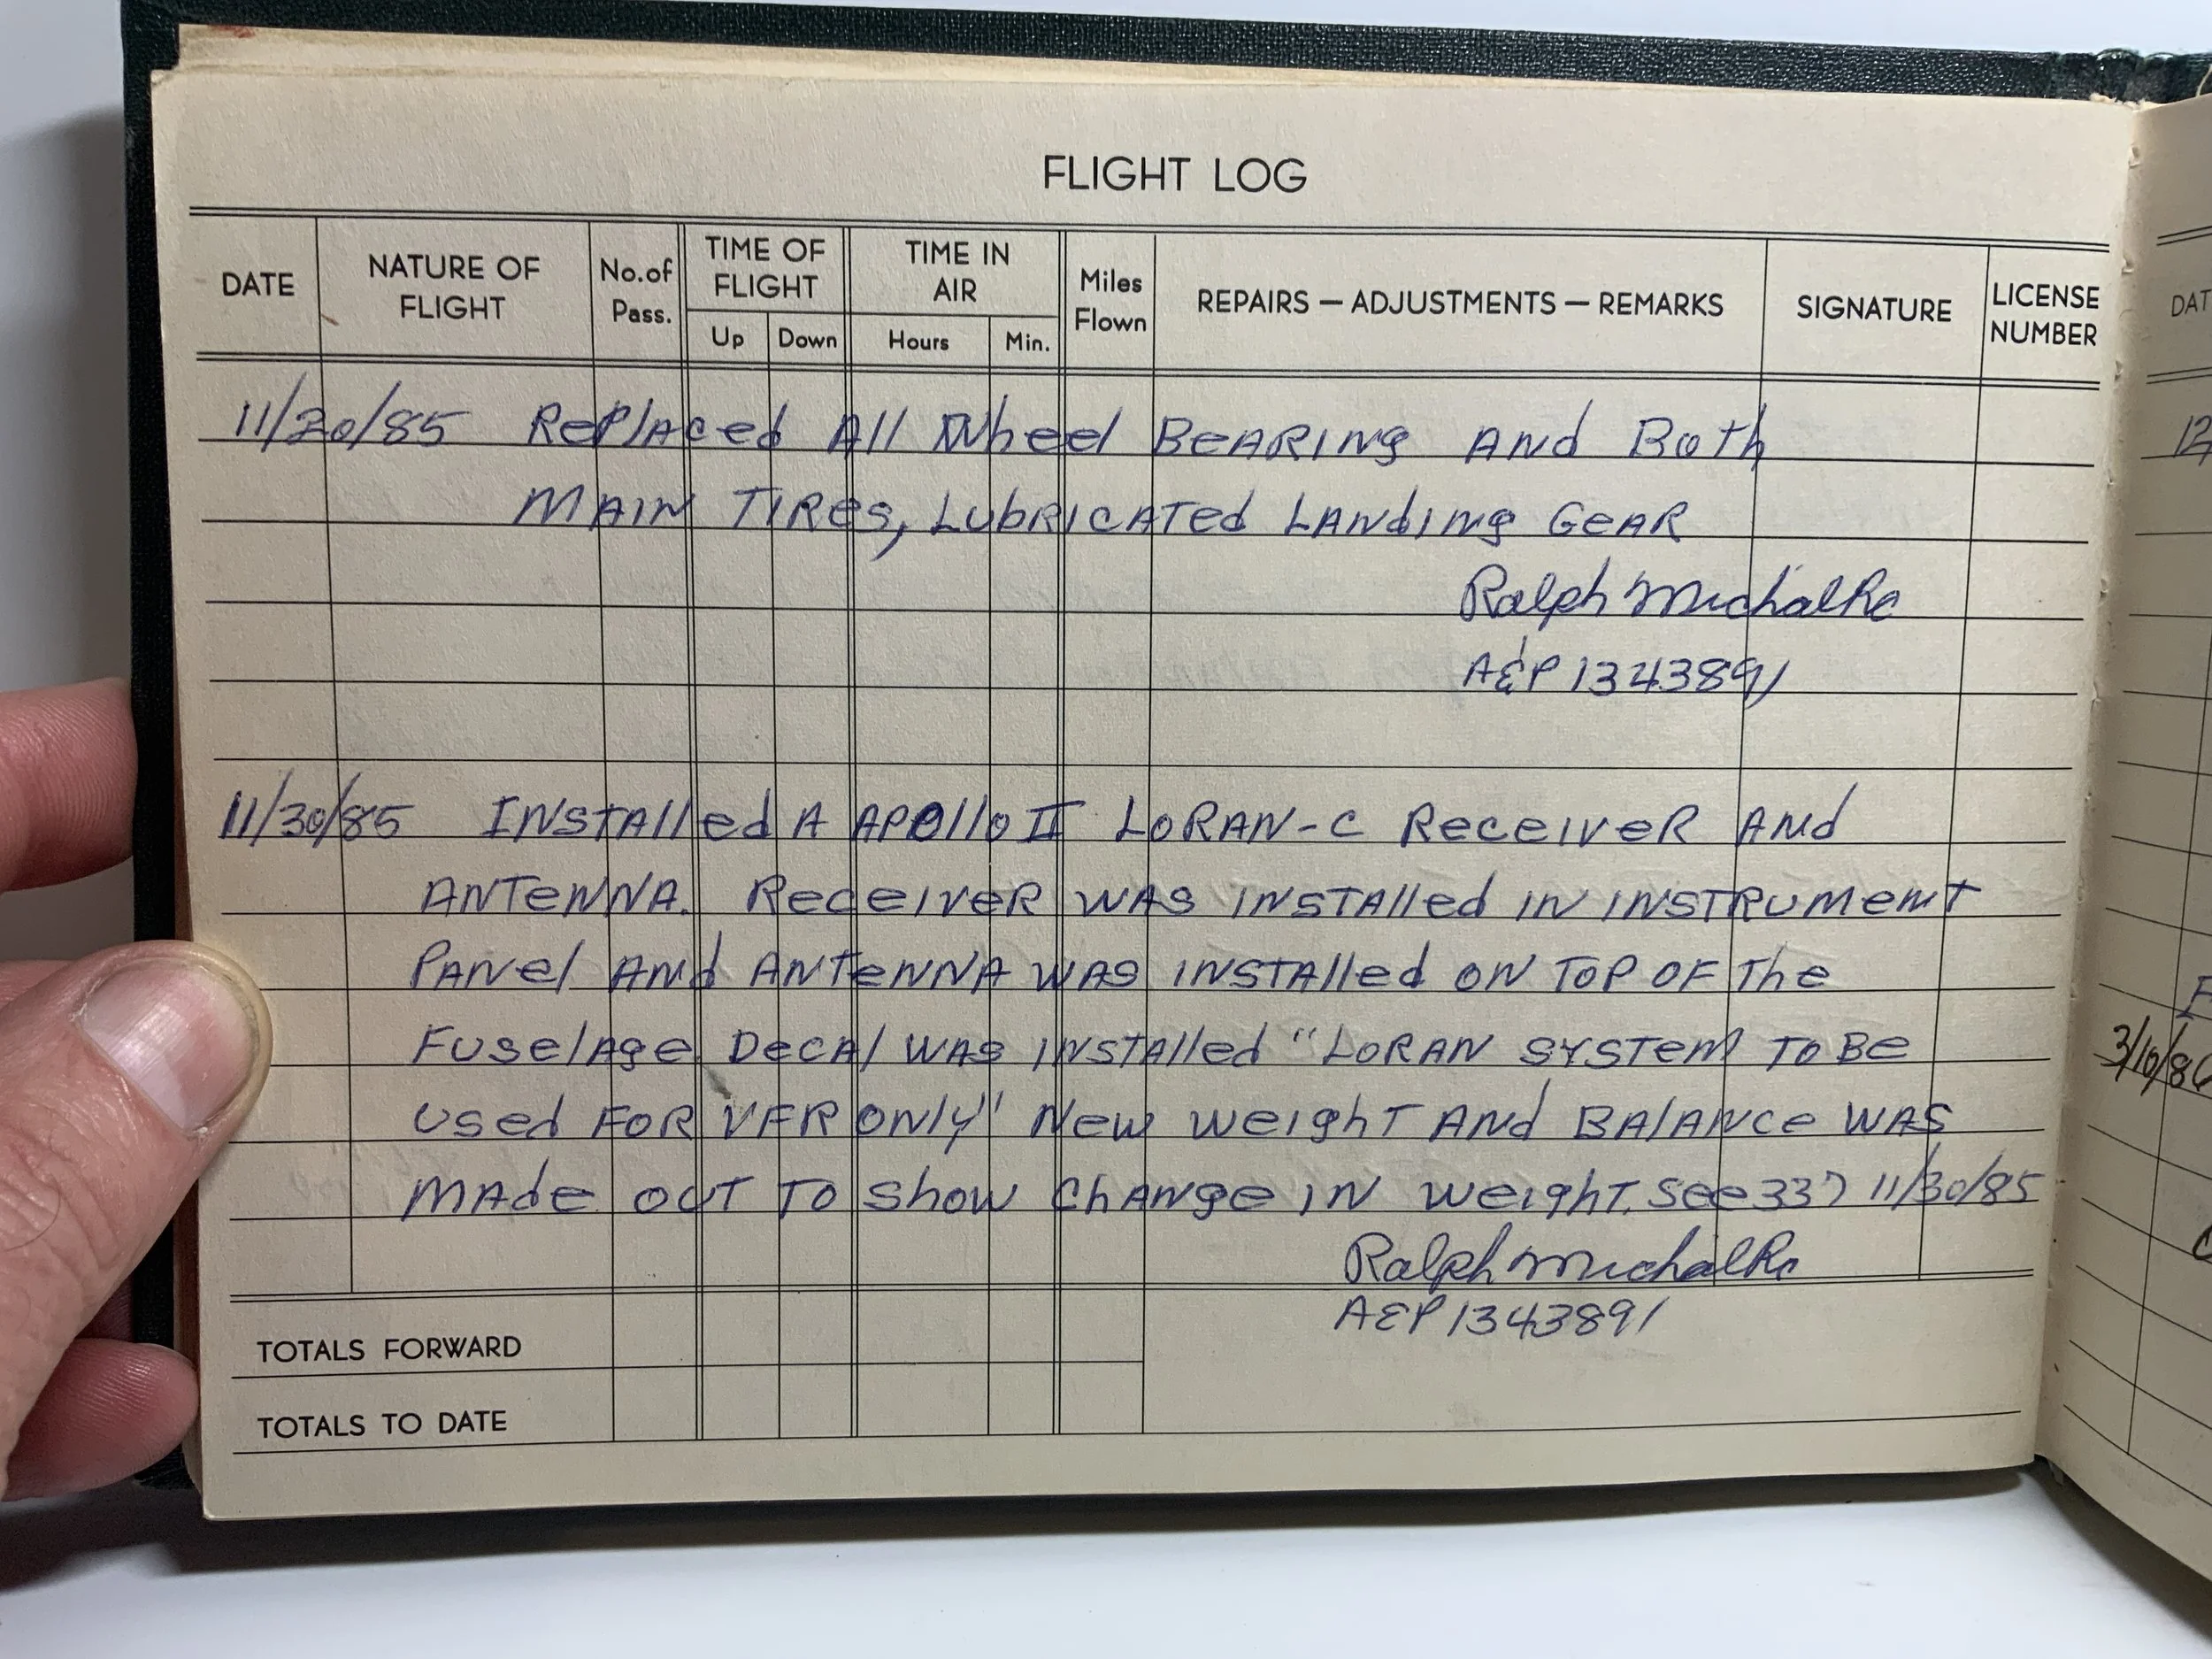 FLIGHT LOG
DATE NATURE OF FLIGHT No. of Pass. TIME OF FLIGHT TIME IN AIR Miles Flown REPAIRS — ADJUSTMENTS — REMARKS SIGNATURE LICENSE NUMBER
Up Down Hours Min.
11/20/85 Replaced All Wheel Bearing And Both
Main Tires, Lubricated Landing Gear
Ralph Michalke
A&P 1343891
11/30/85 Installed A Apollo II Loran-C Receiver And
Antenna. Receiver was installed in instrument
Panel And Antenna was installed on top of the
Fuselage Decal was installed "Loran System to Be
Used For VFR only" New weight And Balance was
Made out to show change in weight. See 337 11/30/85
Ralph Michalke
A&P 1343891
TOTALS FORWARD
TOTALS TO DATE
DAT
12
3/10/86